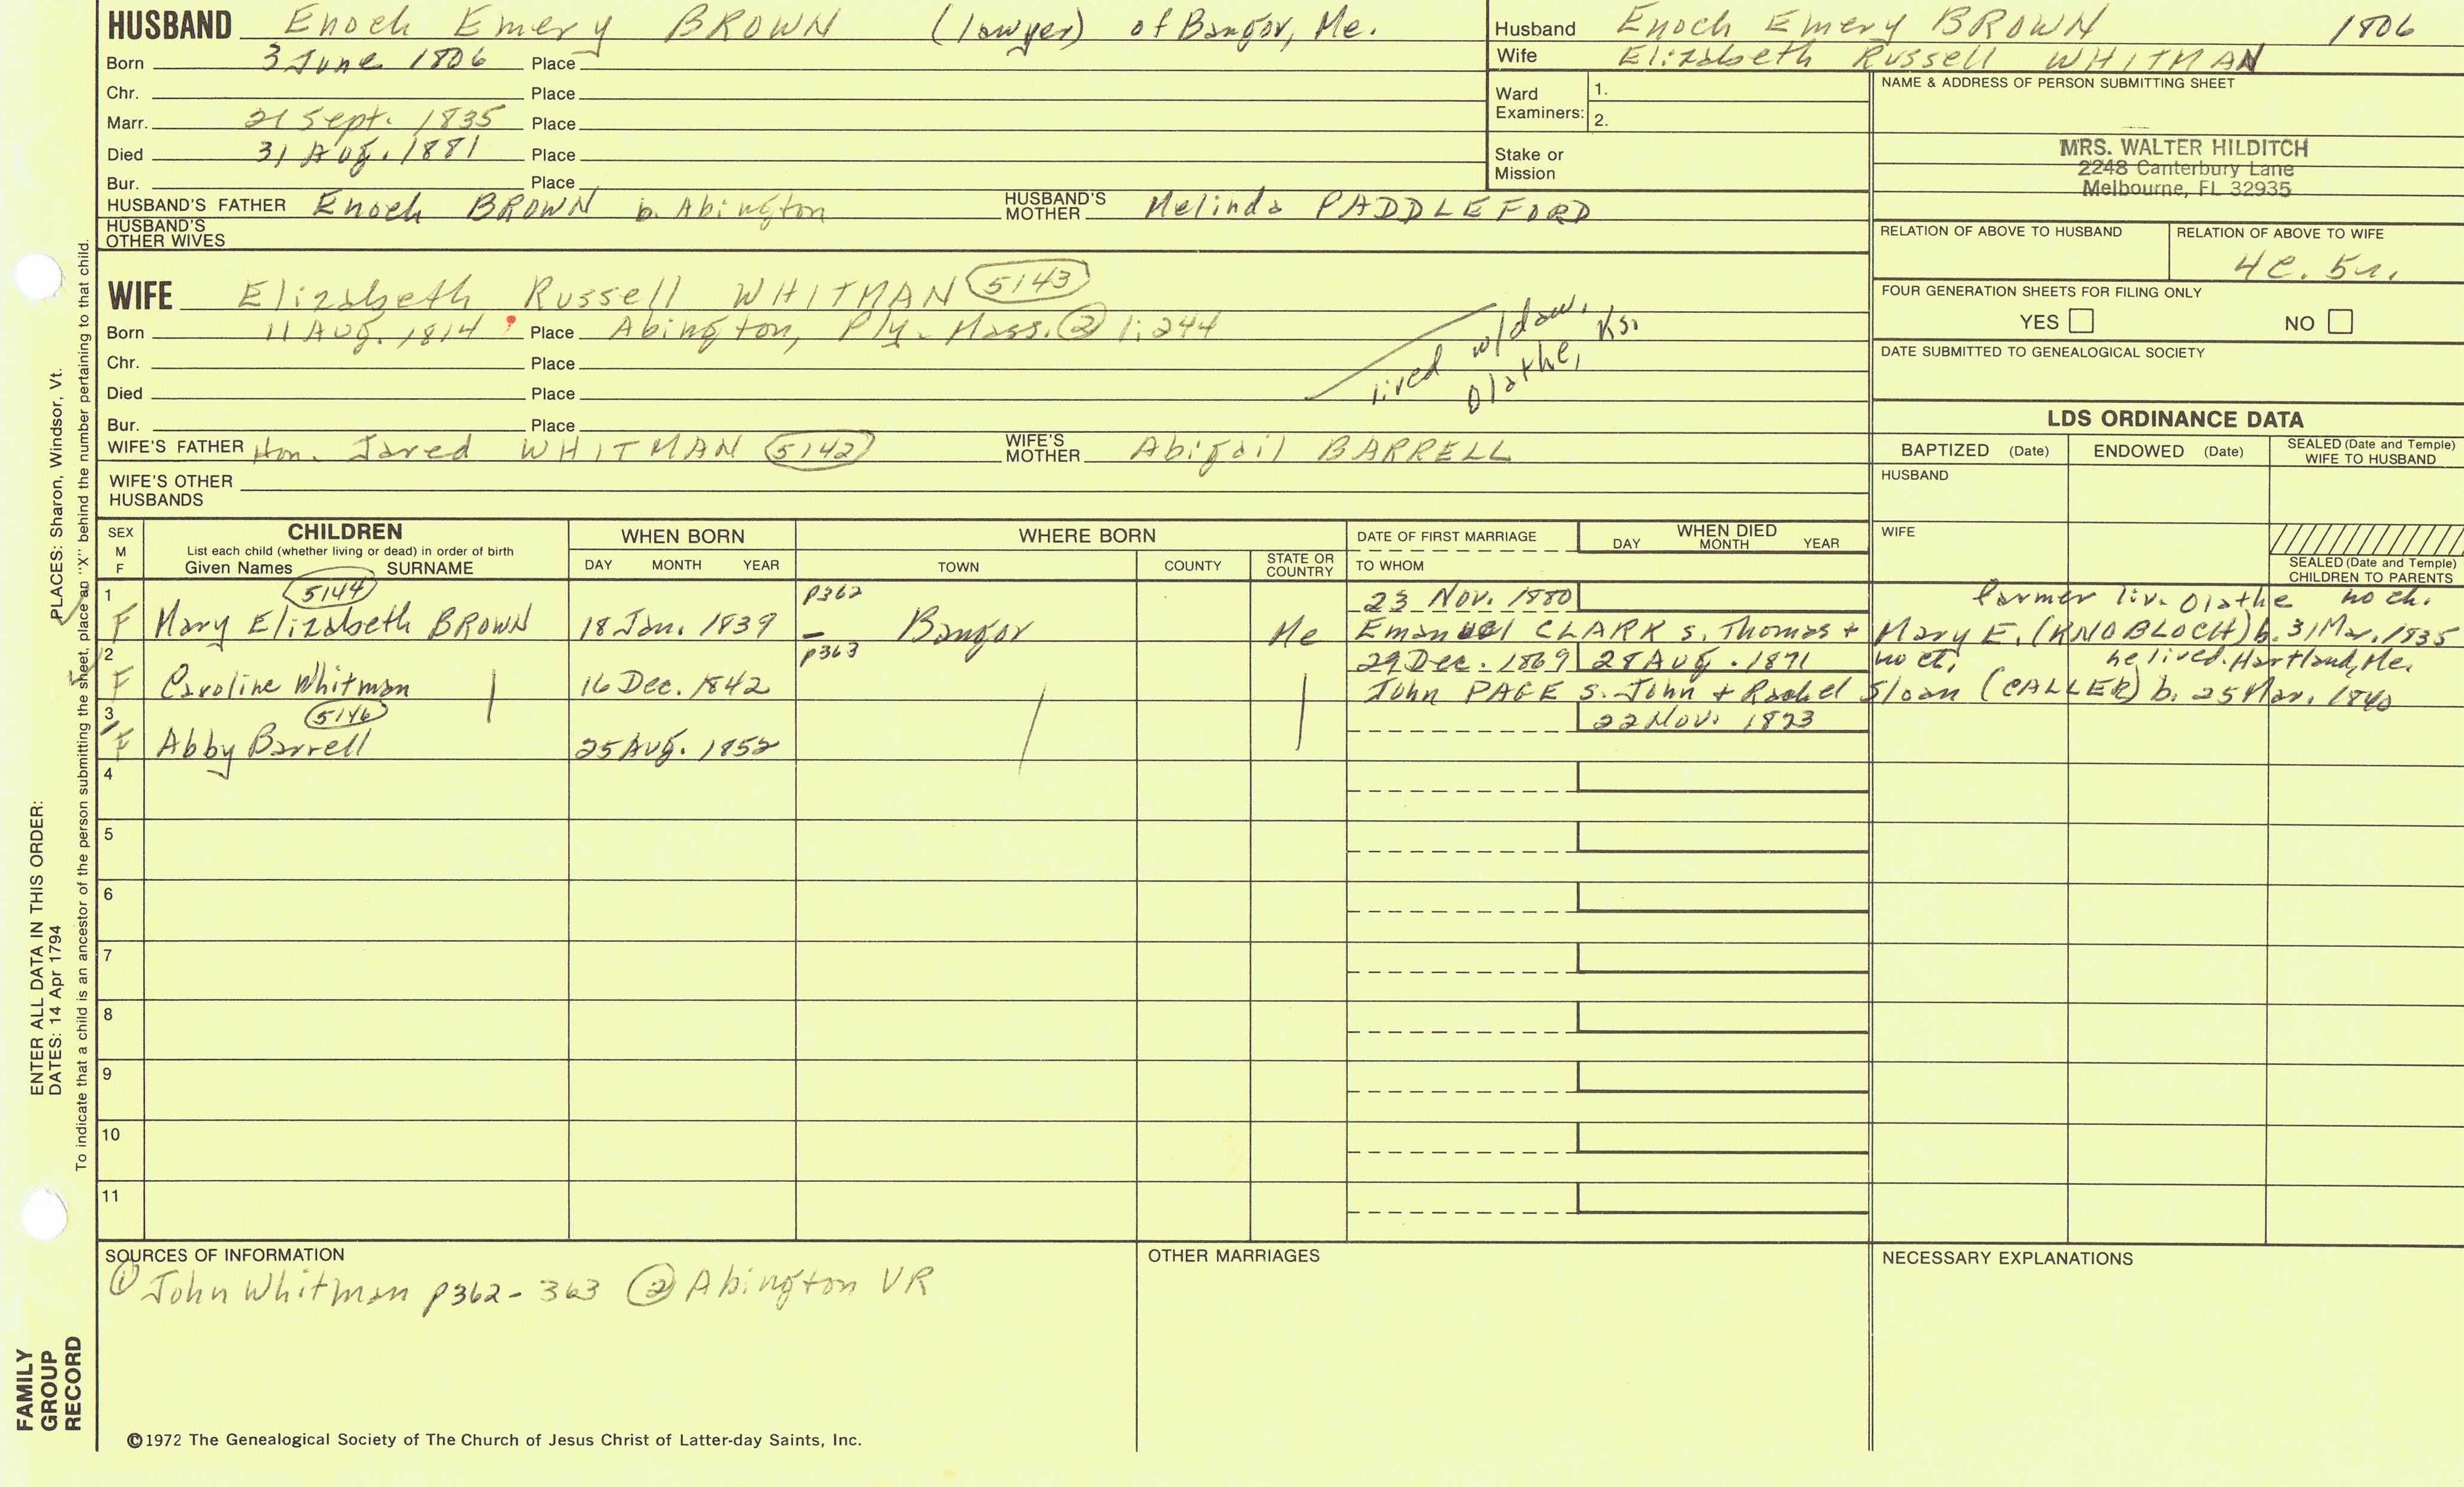 HUSBAND Enoch Emery BROWN (lawyer) of Bangor, Me.
Born 3 June 1806 Place
Chr. Place
Marr. 21 Sept. 1835 Place
Died 31 Aug. 1881 Place
Bur. Place
HUSBAND'S FATHER Enoch BROWN b. Abington HUSBAND'S MOTHER Melinda PADDLEFORD
HUSBAND'S OTHER WIVES
Husband Enoch Emery BROWN 1806
Wife Elizabeth Russell WHITMAN
Ward Examiners: 1.
2.
Stake or Mission
NAME & ADDRESS OF PERSON SUBMITTING SHEET
MRS. WALTER HILDITCH
2248 Canterbury Lane
Melbourne, FL 32935
RELATION OF ABOVE TO HUSBAND RELATION OF ABOVE TO WIFE
4c. 5r.
FOUR GENERATION SHEETS FOR FILING ONLY
YES NO
DATE SUBMITTED TO GENEALOGICAL SOCIETY
WIFE Elizabeth Russell WHITMAN 5143
Born 11 Aug. 1814 Place Abington, Ply. Mass. 2 1:244
Chr. Place
Died Place
Bur. Place
lived w/daw.
Olathe, Ks.
WIFE'S FATHER Hon. Jared WHITMAN 5142 WIFE'S MOTHER Abigail BARRELL
WIFE'S OTHER HUSBANDS
LDS ORDINANCE DATA
BAPTIZED (Date) ENDOWED (Date) SEALED (Date and Temple) WIFE TO HUSBAND
HUSBAND
WIFE
SEALED (Date and Temple) CHILDREN TO PARENTS
SEX M F
CHILDREN
List each child (whether living or dead) in order of birth
Given Names SURNAME
WHEN BORN
DAY MONTH YEAR
WHERE BORN
TOWN COUNTY STATE OR COUNTRY
DATE OF FIRST MARRIAGE
TO WHOM
WHEN DIED
DAY MONTH YEAR
1 5144 p362 23 Nov. 1880 farmer liv. Olathe no ch.
F Mary Elizabeth BROWN 18 Jan. 1839 Bangor Me Emanuel CLARK s. Thomas + Mary E. (KNOBLOCH) b. 31 Mar. 1835
2 p363 29 Dec. 1869 28 Aug. 1871 no ch. he lived Hartland, Me.
F Caroline Whitman 16 Dec. 1842 John PAGE s. John + Rachel Sloan (CALLER) b. 25 Mar. 1840
3 5146 22 Nov. 1873
F Abby Barrell 25 Aug. 1852
4
5
6
7
8
9
10
11
SOURCES OF INFORMATION
1 John Whitman p362-363 2 Abington VR
OTHER MARRIAGES
NECESSARY EXPLANATIONS
©1972 The Genealogical Society of The Church of Jesus Christ of Latter-day Saints, Inc.
ENTER ALL DATA IN THIS ORDER:
DATES: 14 Apr 1794 PLACES: Sharon, Windsor, Vt.
To indicate that a child is an ancestor of the person submitting the sheet, place an "X" behind the number pertaining to that child.
FAMILY
GROUP
RECORD